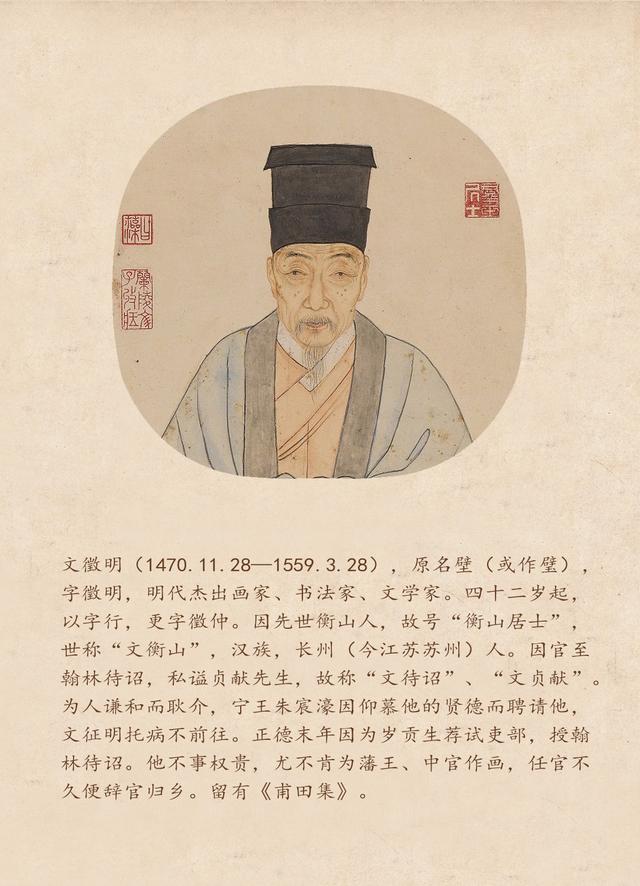 文徵明（1470.11.28—1559.3.28），原名壁（或作璧），
字徵明，明代杰出画家、书法家、文学家。四十二岁起，
以字行，更字徵仲。因先世衡山人，故号“衡山居士”，
世称“文衡山”，汉族，长州（今江苏苏州）人。因官至
翰林待诏，私谥贞献先生，故称“文待诏”、“文贞献”。
为人谦和而耿介，宁王朱宸濠因仰慕他的贤德而聘请他，
文征明托病不前往。正德末年因为岁贡生荐试吏部，授翰
林待诏。他不事权贵，尤不肯为藩王、中官作画，任官不
久便辞官归乡。留有《甫田集》。